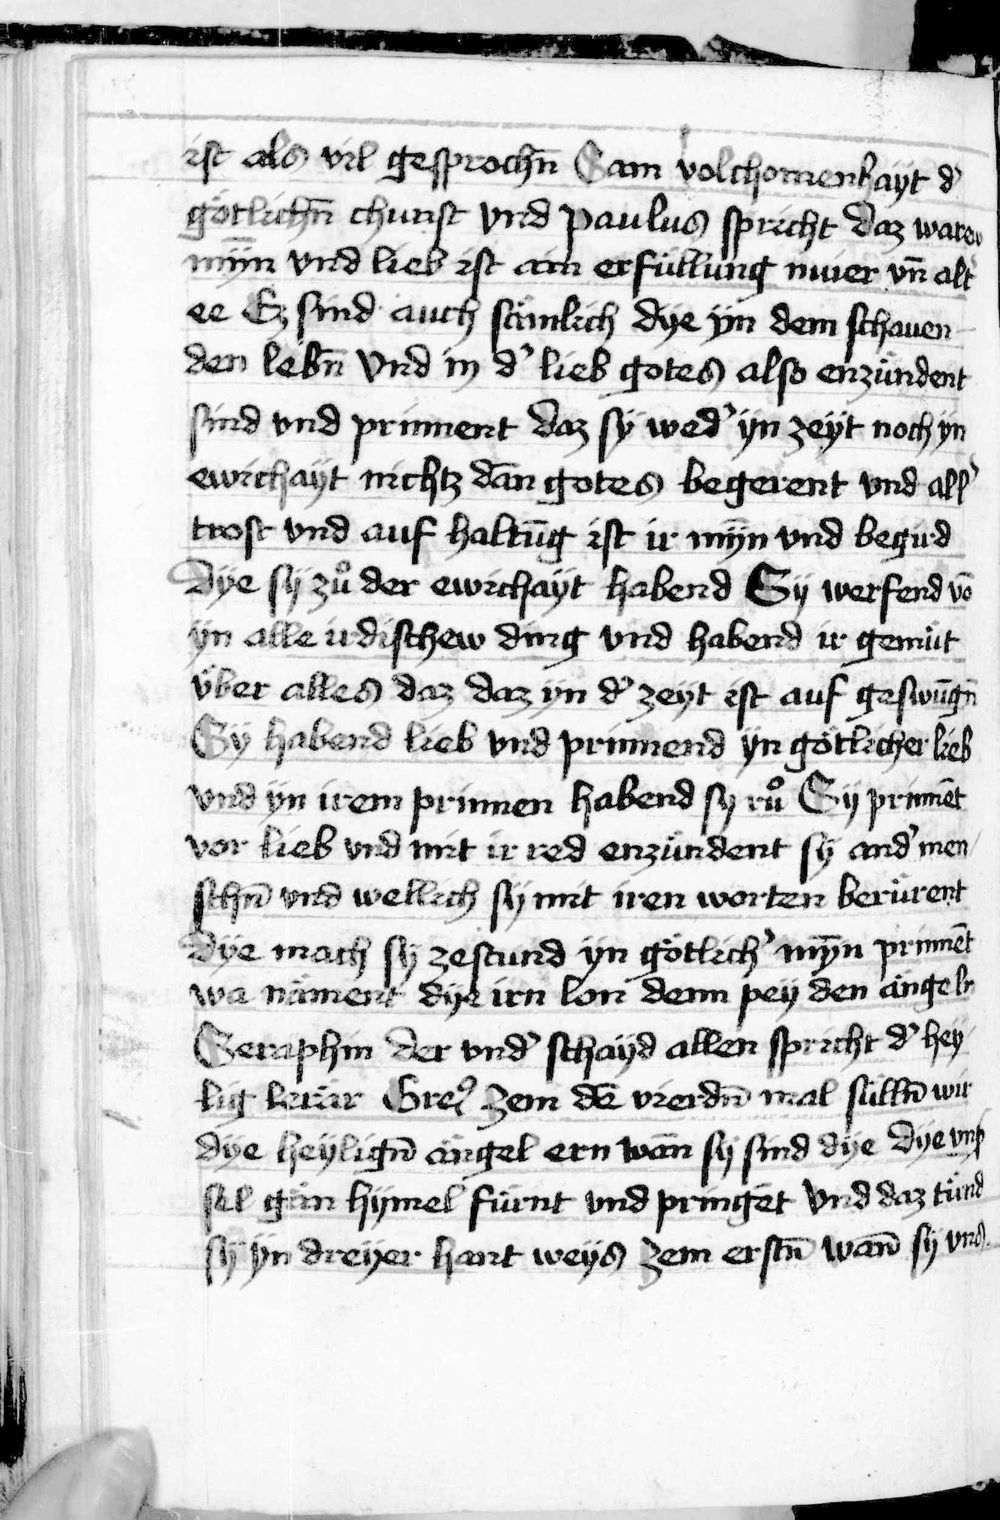 ist als vil gesprochn̄ Sam volchomenhaÿt d᾿
götlichn̄ chunst vnd paulus spricht daz warew
mÿ̄n vnd lieb ist ain erfüllung niwer vn̄ alt᾿
ee Ez sind auch sämlich dÿe ÿn dem schauen
den lebn̄ Vnd in d᾿ lieb gotes also enzündent
sind vnd prinnent daz sÿ wed᾿ ÿn zeÿt noch ÿn
ewichaÿt nichtz dān gotes begerent vnd all᾿
trost vnd auf haltūg ist ir mÿ̄n vnd begird
Dÿe sÿ zů der ewichaÿt habend Sÿ werfend vō
ÿn alle irdischew ding vnd habend ir gemüt
über alles daz daz ÿn d᾿ zeÿt ist auf geswūgn̄
Sÿ habend lieb vnd prinnend ÿn götlicher lieb
vnd ÿn irem prinnen habend sÿ rů Sÿ prinnēt
vor lieb vnd mit ir red enzündent sÿ and᾿ men
schn̄ vnd wellich sÿ mit iren worten berürent
Dÿe mach sÿ zestund ÿn götlich᾿ mÿ̄n prinnēt
wa näment dÿe irn lon denn peÿ den ängeln
Seraphin der vnd᾿ schaÿd allen spricht d᾿ heÿ
lig lerär Gre᾿ Zem dē vierdn̄ mal sülln̄ wir
dÿe heÿlign̄ ängel ern wān sÿ sind dÿe Dÿe vns᾿
sel gän hÿmel fürnt vnd pringēt Vnd daz tünd
sÿ ÿn dreÿer hant weÿs Zem erstn̄ wān sÿ vns